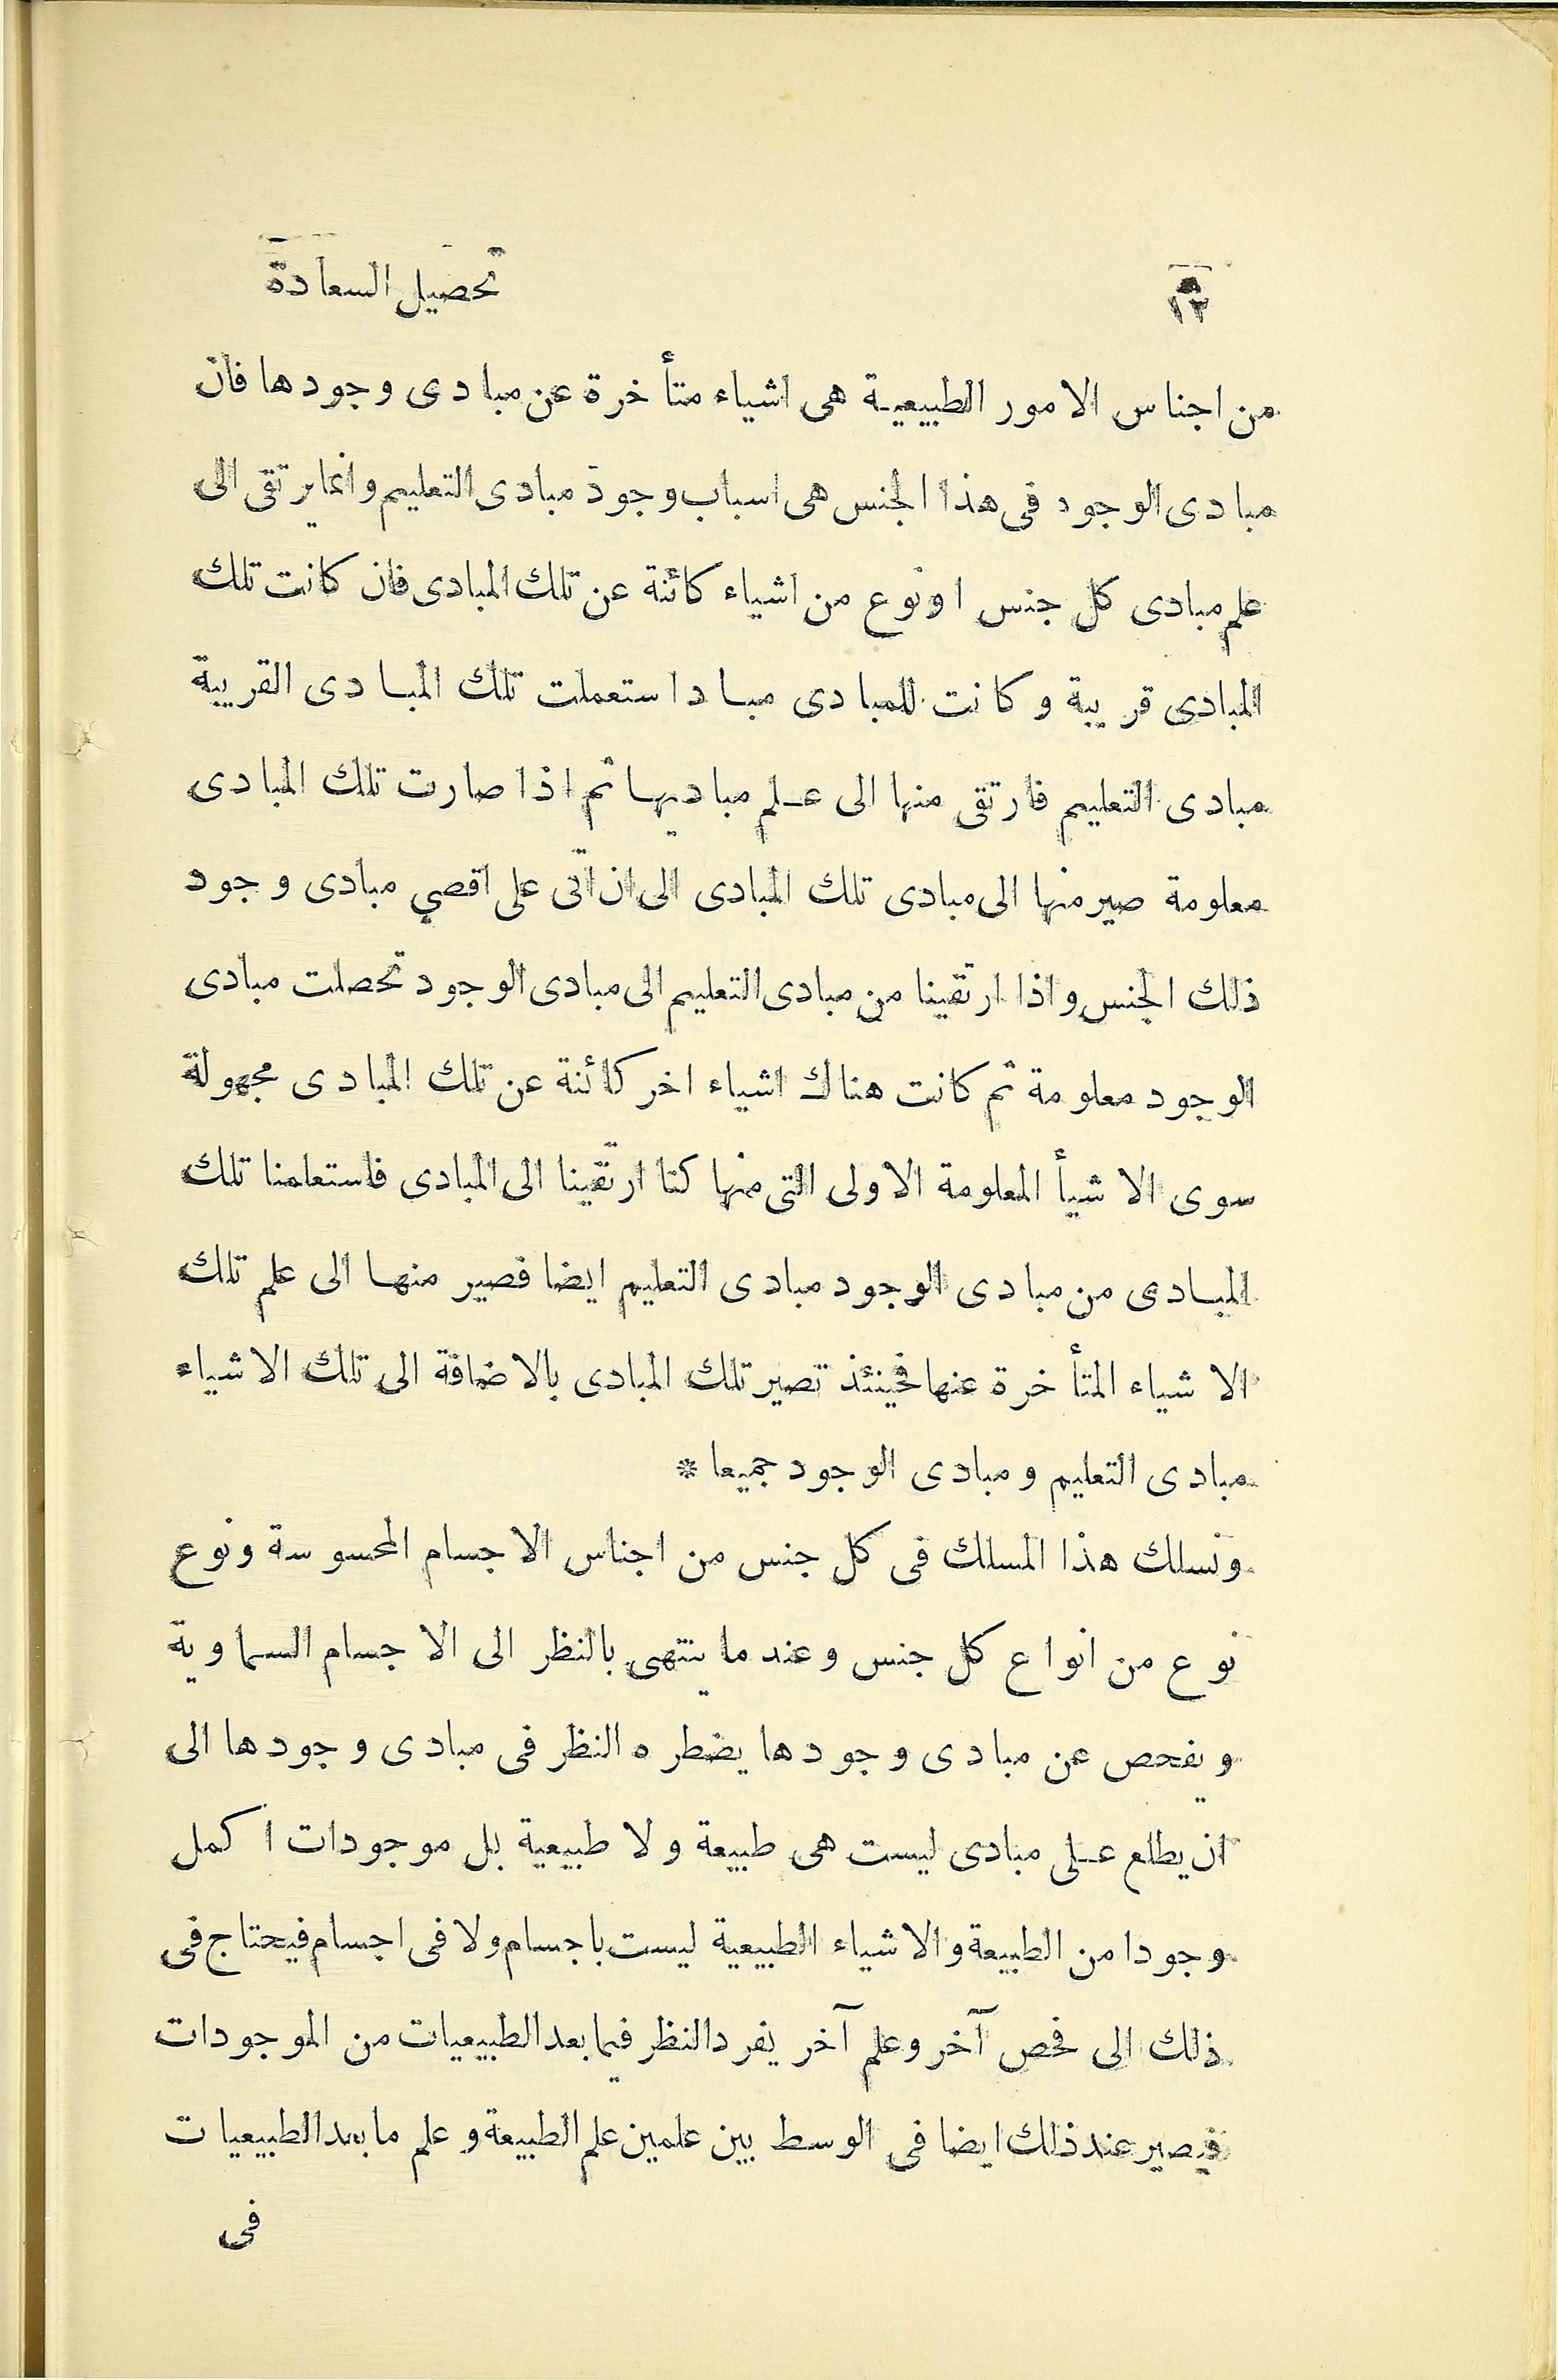 ١٢ تحصيل السعادة
من اجناس الامور الطبيعية هى اشياء متأخرة عن مبادى وجودها فان
مبادى الوجود فى هذا الجنس هى اسباب وجود مبادى التعليم وانما يرتقى الى
علم مبادى كل جنس او نوع من اشياء كائنة عن تلك المبادى فان كانت تلك
المبادى قريبة وكانت للمبادى مباد استعملت تلك المبادى القريبة
مبادى التعليم فارتقى منها الى علم مباديها ثم اذا صارت تلك المبادى
معلومة صير منها الى مبادى تلك المبادى الى ان اتى على اقصي مبادى وجود
ذلك الجنس واذا ارتقينا من مبادى التعليم الى مبادى الوجود تحصلت مبادى
الوجود معلومة ثم كانت هناك اشياء اخر كائنة عن تلك المبادى مجهولة
سوى الاشيأ المعلومة الاولى التى منها كنا ارتقينا الى المبادى فاستعلمنا تلك
المبادى من مبادى الوجود مبادى التعليم ايضا فصير منها الى علم تلك
الاشياء المتأخرة عنها فحينئذ تصير تلك المبادى بالاضافة الى تلك الاشياء
مبادى التعليم ومبادى الوجود جميعا *
ونسلك هذا المسلك فى كل جنس من اجناس الاجسام المحسوسة ونوع
نوع من انواع كل جنس وعند ما ينتهى بالنظر الى الاجسام السماوية
ويفحص عن مبادى وجودها يضطره النظر فى مبادى وجودها الى
ان يطلع على مبادى ليست هى طبيعة ولا طبيعية بل موجودات اكمل
وجودا من الطبيعة والاشياء الطبيعية ليست باجسام ولا فى اجسام فيحتاج فى
ذلك الى فحص آخر وعلم آخر يفرد النظر فيما بعد الطبيعيات من الموجودات
فيصير عند ذلك ايضا فى الوسط بين علمين علم الطبيعة وعلم ما بعد الطبيعيات
فى